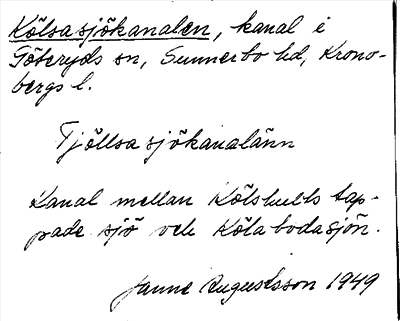 Kölsasjökanalen, kanal i
Göteryds sn, Sunnerbo hd, Krono-
bergs l.
Tjöllsasjökanalänn
Kanal mellan Kölshults tap-
pade sjö och Kölabodasjön.
Janne Augustsson 1949